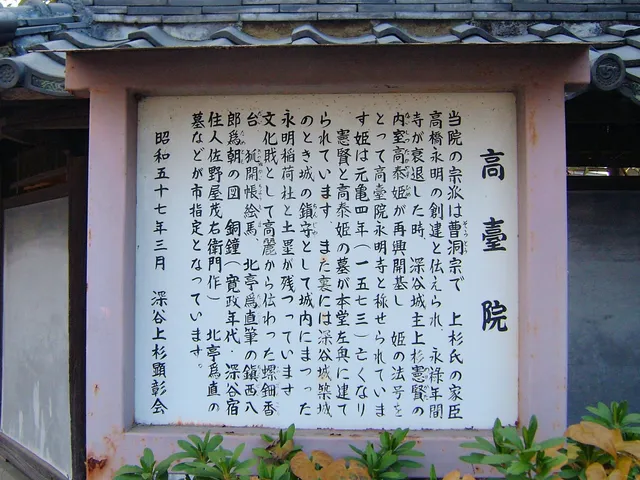 高臺院
当院の宗派は曹洞宗で 上杉氏の家臣
高橋永明の創建と伝えられ、永禄年間
寺が衰退した時、深谷城主上杉憲賢の
内室高泰姫が再興開基し 姫の法号を
とって高臺院永明寺と称せられていま
す 姫は元亀四年(一五七三)亡くなり
憲賢と高泰姫の墓が本堂左奥に建て
られています。また裏には深谷城築城
のとき城の鎮守として城内にまつった
永明稲荷社と土塁が残っています
文化財として高麗から伝わった螺鈿香
台、狐開帳絵馬、北亭為直筆の鎮西八
郎為朝の図 銅鐘(寛政年代・深谷宿
住人佐野屋茂右衛門作) 北亭為直の
墓などが市指定となっています。
昭和五十七年三月 深谷上杉顕彰会